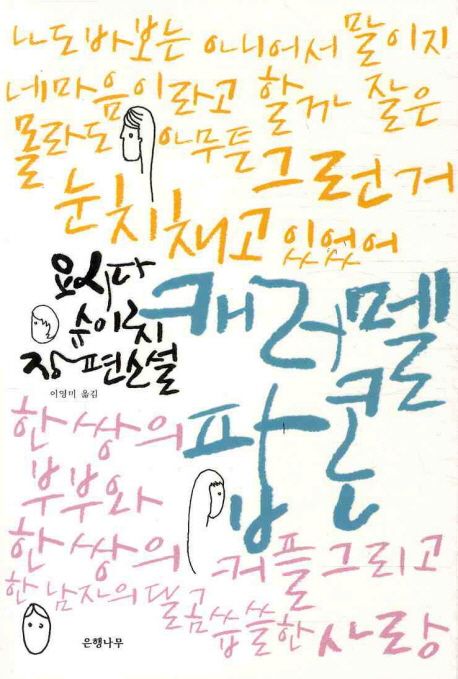 나도바보는 아니어서 말이지
네마음이라고 할까 잘은
몰라도 아무튼 그런거
눈치채고 있었어
요시다
슈이치
장편소설
이영미 옮김
캐러멜
팝콘
한쌍의
부부와
한쌍의 커플그리고
한남자의달콤쌉쌀한 사랑
은행나무